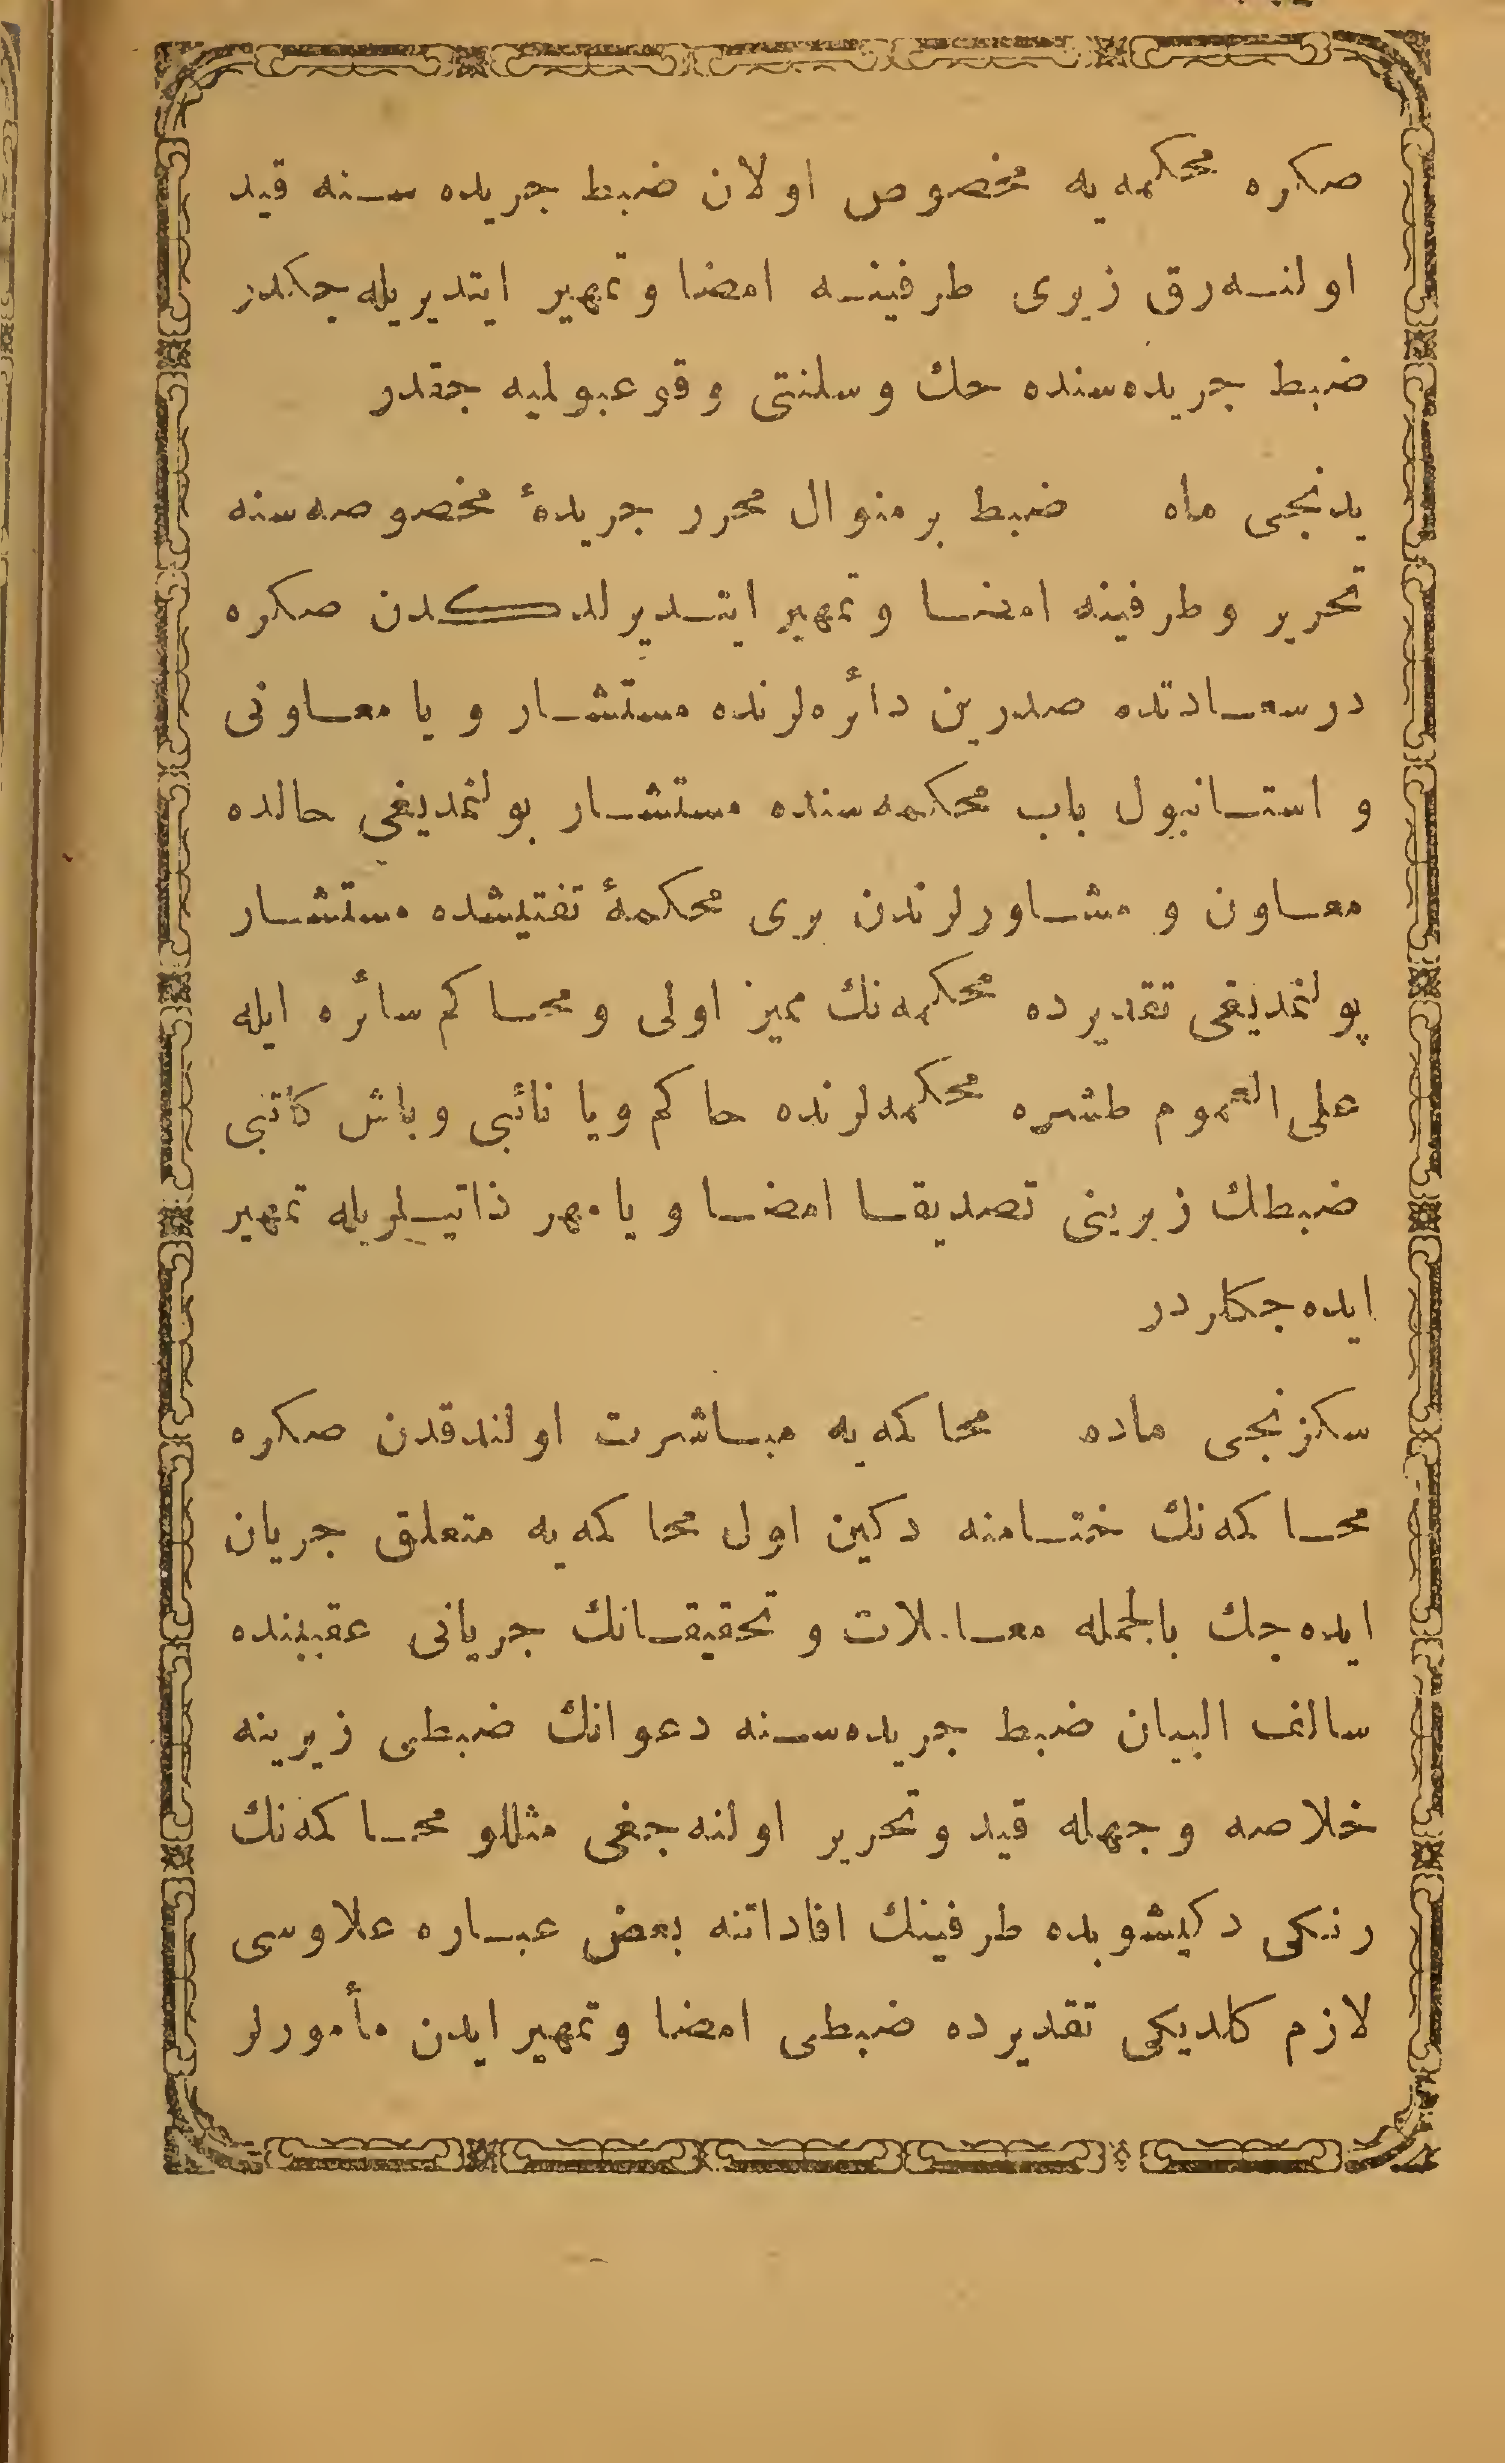 صكره محكمه‌يه مخصوص اولان ضبط جريده سنه قيد
اولنه‌رق زيرى طرفينه امضا و تمهير ايتديريله‌جكدر
ضبط جريده‌سنده حك وسلنتى وقوعبولميه جقدر
يدنجى ماه ضبط بر منوال محرر جريدۀ مخصوصه‌سنه
تحرير و طرفينه امضا و تمهير ايتديرلدكدن صكره
درسعادتده صدرين دائره‌لرنده مستشار و يا معاونى
و استانبول باب محكمه‌سنده مستشار بولنمديغى حالده
معاون و مشاورلرندن برى محكمۀ تفتيشده مستشار
بولنمديغى تقديرده محكمه‌نك مميز اولى و محاكم سائره ايله
على العموم طشره محكمه‌لرنده حاكم ويا نائبى وباش كاتبى
ضبطك زيرينى تصديقا امضا و يا مهر ذاتيلريله تمهير
ايده‌جكلردر
سكزنجى ماده محاكمه‌يه مباشرت اولندقدن صكره
محاكمه‌نك ختامنه دكين اول محاكمه‌يه متعلق جريان
ايده‌جك بالجمله معاملات و تحقيقاتك جريانى عقبنده
سالف البيان ضبط جريده‌سنه دعوانك ضبطى زيرينه
خلاصه وجهله قيد وتحرير اولنه‌جغى مثللو محاكمه‌نك
رنكى دكيشوبده طرفينك افاداتنه بعض عباره علاوسى
لازم كلديكى تقديرده ضبطى امضا وتمهير ايدن مأمورلر